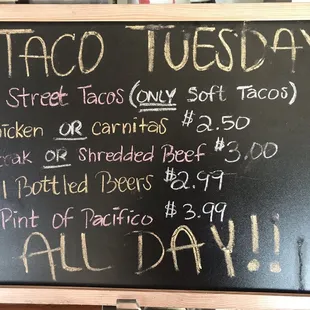 TACO TUESDAY
Street Tacos (ONLY Soft Tacos)
icken OR carnitas $2.50
eak OR Shredded Beef $3.00
l Bottled Beers $2.99
Pint of Pacifico $3.99
ALL DAY!!